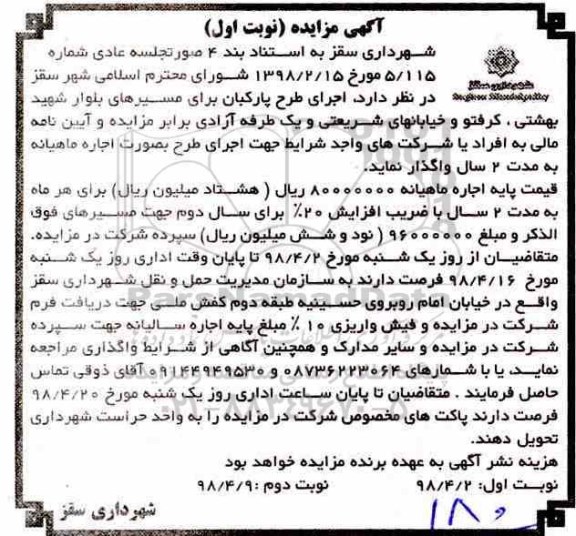 آگهی مزایده (نوبت اول)
شهرداری سقز به استناد بند ۴ صورتجلسه عادی شماره
۵/۱۱۵ مورخ ۱۳۹۸/۲/۱۵ شورای محترم اسلامی شهر سقز
در نظر دارد، اجرای طرح پارکبان برای مسیرهای بلوار شهید
بهشتی ، کرفتو و خیابانهای شریعتی و یک طرفه آزادی برابر مزایده و آیین نامه
مالی به افراد یا شرکت های واجد شرایط جهت اجرای طرح بصورت اجاره ماهیانه
به مدت ۲ سال واگذار نماید.
قیمت پایه اجاره ماهیانه ۸۰۰۰۰۰۰۰ ریال ( هشتاد میلیون ریال) برای هر ماه
به مدت ۲ سال با ضریب افزایش ۲۰٪ برای سال دوم جهت مسیرهای فوق
الذکر و مبلغ ۹۶۰۰۰۰۰۰ ( نود و شش میلیون ریال) سپرده شرکت در مزایده.
متقاضیان از روز یک شنبه مورخ ۹۸/۴/۲ تا پایان وقت اداری روز یک شنبه
مورخ ۹۸/۴/۱۶ فرصت دارند به سازمان مدیریت حمل و نقل شهرداری سقز
واقع در خیابان امام روبروی حسینیه طبقه دوم کفش ملی جهت دریافت فرم
شرکت در مزایده و فیش واریزی ۱۰ ٪ مبلغ پایه اجاره سالیانه جهت سپرده
شرکت در مزایده و سایر مدارک و همچنین آگاهی از شرایط واگذاری مراجعه
نمایند، یا با شمارهای ۰۸۷۳۶۲۲۳۰۶۴ و ۰۹۱۴۴۹۴۹۵۳۰ آقای ذوقی تماس
حاصل فرمایند . متقاضیان تا پایان ساعت اداری روز یک شنبه مورخ ۹۸/۴/۲۰
فرصت دارند پاکت های مخصوص شرکت در مزایده را به واحد حراست شهرداری
تحویل دهند.
هزینه نشر آگهی به عهده برنده مزایده خواهد بود
نوبت اول: ۹۸/۴/۲ نوبت دوم :۹۸/۴/۹
شهرداری سقز